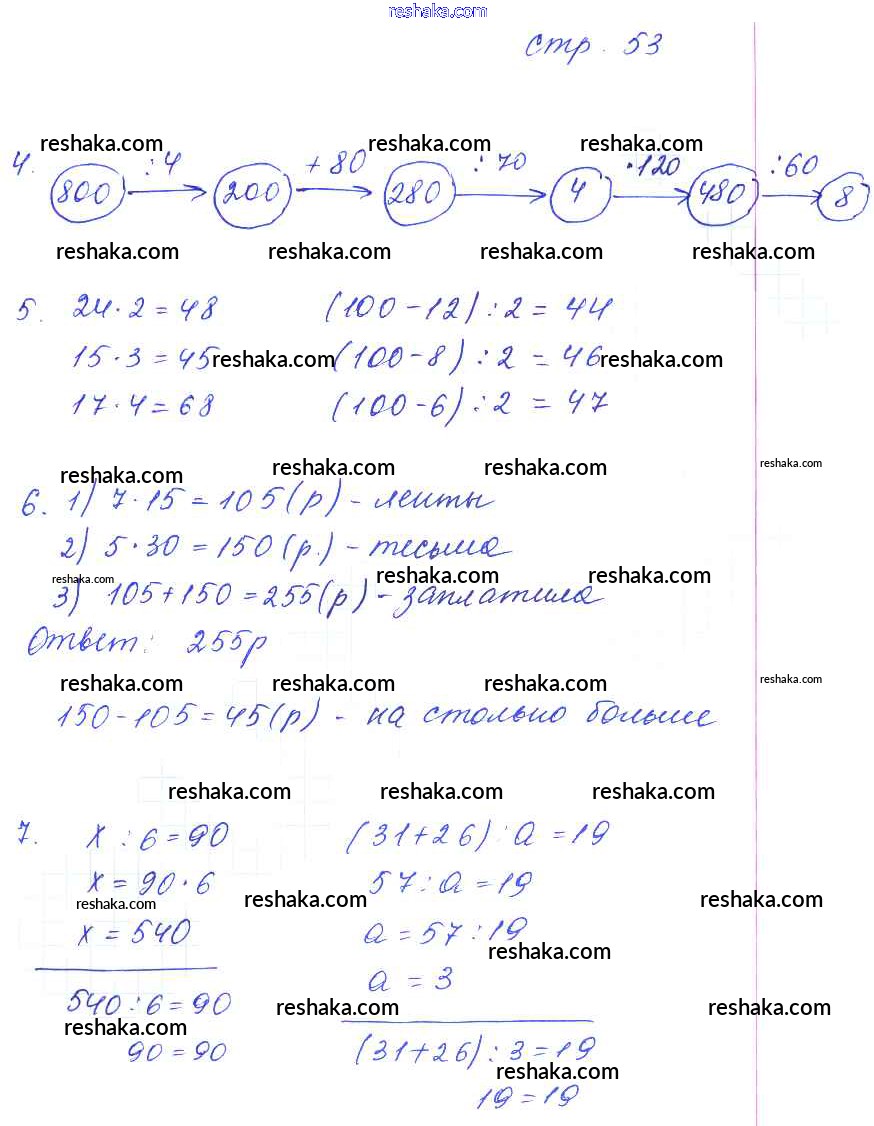 reshaka.com
стр. 53
reshaka.com reshaka.com reshaka.com
4. :4 +80 :70 ·120 :60
800 200 280 4 480 8
reshaka.com reshaka.com reshaka.com reshaka.com
5. 24·2=48 (100-12):2=44
15·3=45 reshaka.com (100-8):2=46 reshaka.com
17·4=68 (100-6):2=47
reshaka.com reshaka.com reshaka.com reshaka.com
6. 1) 7·15=105(р) - ленты
2) 5·30=150(р.) - тесьма
reshaka.com reshaka.com reshaka.com
3) 105+150=255(р) - заплатила
Ответ: 255р
reshaka.com reshaka.com reshaka.com reshaka.com
150-105=45(р) - на столько больше
reshaka.com reshaka.com reshaka.com
7. x:6=90 (31+26):a=19
x=90·6 57:a=19
reshaka.com reshaka.com reshaka.com
x=540 a=57:19
reshaka.com
a=3
540:6=90 reshaka.com reshaka.com
reshaka.com
90=90 (31+26):3=19
reshaka.com
19=19